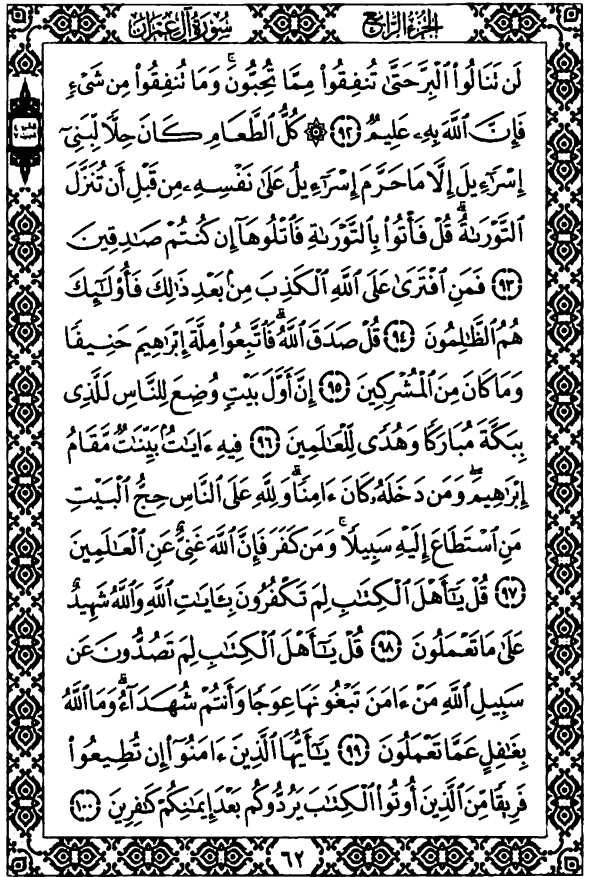 الجزء الرابع
سورة آل عمران
لَن تَنَالُوا۟ ٱلْبِرَّ حَتَّىٰ تُنفِقُوا۟ مِمَّا تُحِبُّونَ ۚ وَمَا تُنفِقُوا۟ مِن شَىْءٍ
فَإِنَّ ٱللَّهَ بِهِۦ عَلِيمٌ ﴿٩٢﴾ ۞ كُلُّ ٱلطَّعَامِ كَانَ حِلًّا لِّبَنِىٓ
إِسْرَٰٓءِيلَ إِلَّا مَا حَرَّمَ إِسْرَٰٓءِيلُ عَلَىٰ نَفْسِهِۦ مِن قَبْلِ أَن تُنَزَّلَ
ٱلتَّوْرَىٰةُ ۗ قُلْ فَأْتُوا۟ بِٱلتَّوْرَىٰةِ فَٱتْلُوهَآ إِن كُنتُمْ صَـٰدِقِينَ
﴿٩٣﴾ فَمَنِ ٱفْتَرَىٰ عَلَى ٱللَّهِ ٱلْكَذِبَ مِنۢ بَعْدِ ذَٰلِكَ فَأُو۟لَـٰٓئِكَ
هُمُ ٱلظَّـٰلِمُونَ ﴿٩٤﴾ قُلْ صَدَقَ ٱللَّهُ ۗ فَٱتَّبِعُوا۟ مِلَّةَ إِبْرَٰهِيمَ حَنِيفًا
وَمَا كَانَ مِنَ ٱلْمُشْرِكِينَ ﴿٩٥﴾ إِنَّ أَوَّلَ بَيْتٍ وُضِعَ لِلنَّاسِ لَلَّذِى
بِبَكَّةَ مُبَارَكًا وَهُدًى لِّلْعَـٰلَمِينَ ﴿٩٦﴾ فِيهِ ءَايَـٰتٌۢ بَيِّنَـٰتٌ مَّقَامُ
إِبْرَٰهِيمَ ۖ وَمَن دَخَلَهُۥ كَانَ ءَامِنًا ۗ وَلِلَّهِ عَلَى ٱلنَّاسِ حِجُّ ٱلْبَيْتِ
مَنِ ٱسْتَطَاعَ إِلَيْهِ سَبِيلًا ۚ وَمَن كَفَرَ فَإِنَّ ٱللَّهَ غَنِىٌّ عَنِ ٱلْعَـٰلَمِينَ
﴿٩٧﴾ قُلْ يَـٰٓأَهْلَ ٱلْكِتَـٰبِ لِمَ تَكْفُرُونَ بِـَٔايَـٰتِ ٱللَّهِ وَٱللَّهُ شَهِيدٌ
عَلَىٰ مَا تَعْمَلُونَ ﴿٩٨﴾ قُلْ يَـٰٓأَهْلَ ٱلْكِتَـٰبِ لِمَ تَصُدُّونَ عَن
سَبِيلِ ٱللَّهِ مَنْ ءَامَنَ تَبْغُونَهَا عِوَجًا وَأَنتُمْ شُهَدَآءُ ۗ وَمَا ٱللَّهُ
بِغَـٰفِلٍ عَمَّا تَعْمَلُونَ ﴿٩٩﴾ يَـٰٓأَيُّهَا ٱلَّذِينَ ءَامَنُوٓا۟ إِن تُطِيعُوا۟
فَرِيقًا مِّنَ ٱلَّذِينَ أُوتُوا۟ ٱلْكِتَـٰبَ يَرُدُّوكُم بَعْدَ إِيمَـٰنِكُمْ كَـٰفِرِينَ ﴿١٠٠﴾
٦٢